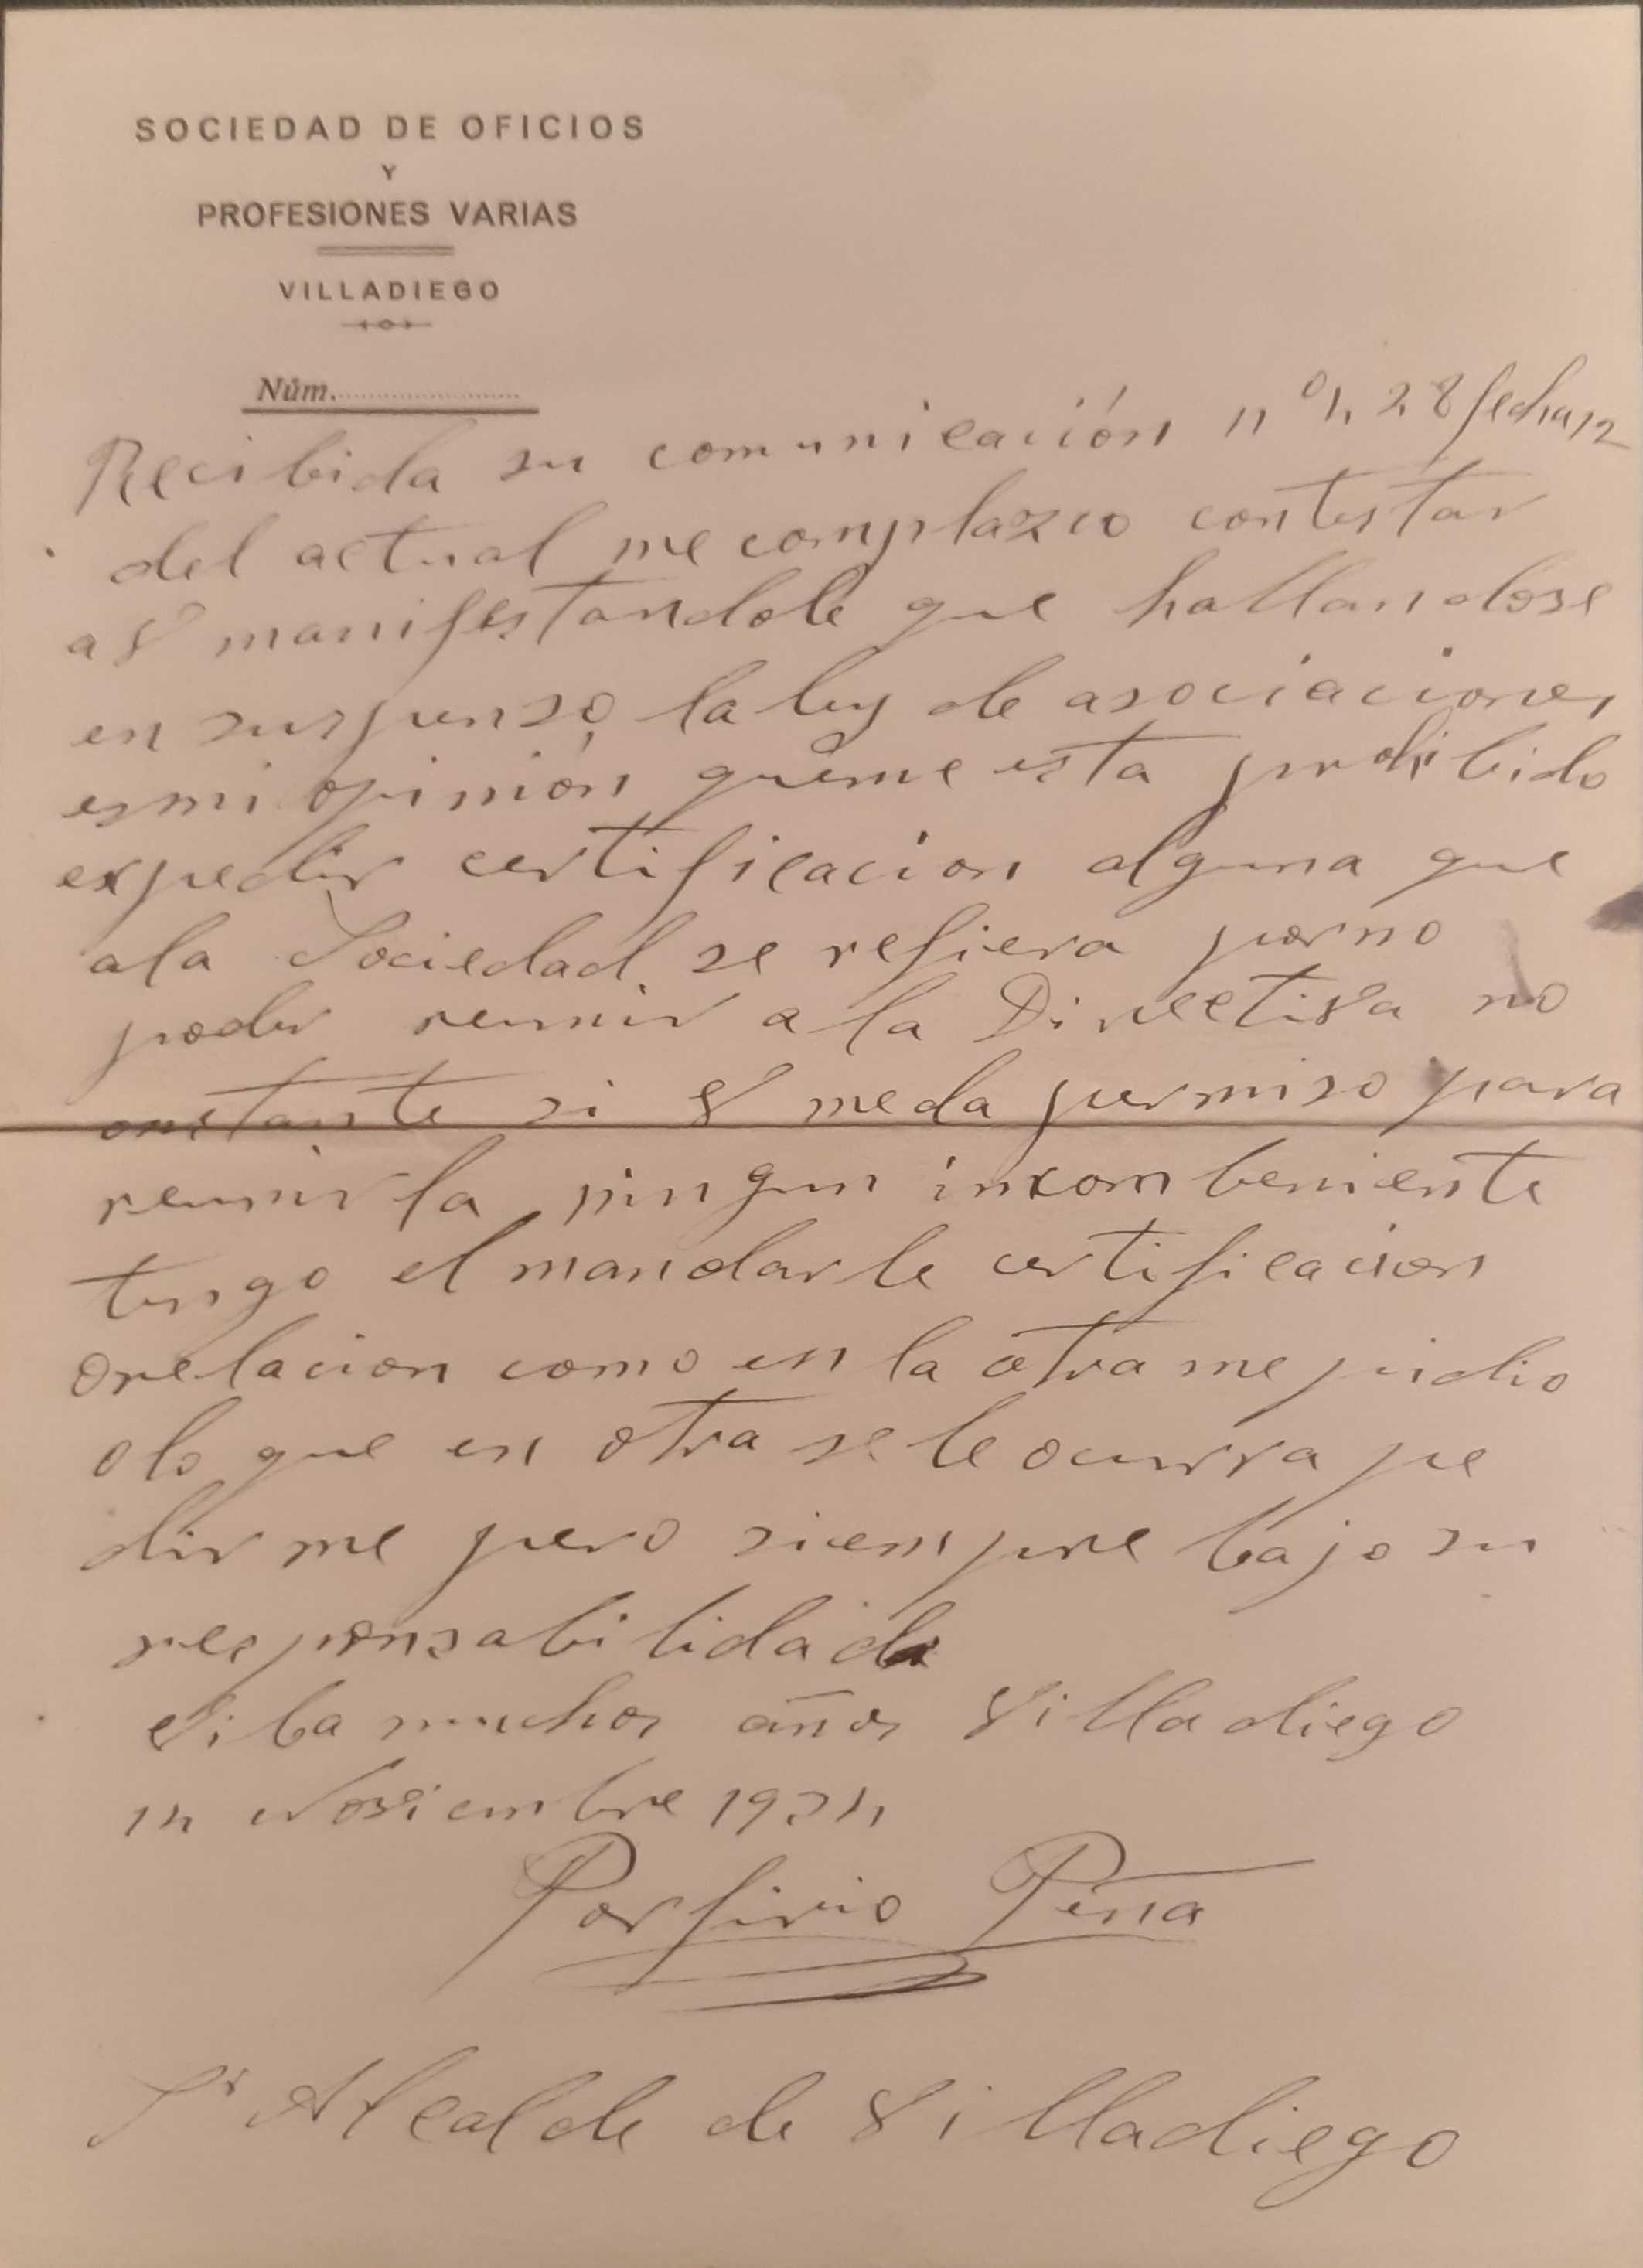 SOCIEDAD DE OFICIOS
Y
PROFESIONES VARIAS
VILLADIEGO
Núm.
Recibida su comunicación nº 428 fecha 12
del actual me complazco contestar
a V manifestandole que hallandose
en suspenso la ley de asociaciones
es mi opinión que me esta prohibido
expedir certificacion alguna que
a la Sociedad se refiera por no
poder reunir a la Directiva no
onstante si V me da permiso para
reunirla ningun incombeniente
tengo el mandarle certificacion
o relacion como en la otra me pidio
o lo que en otra se le ocurra pe
dirme pero siempre bajo su
responsabilidad
Viba muchos años Villadiego
14 Noviembre 1934
Porfirio Peña
Sr Alcalde de Villadiego